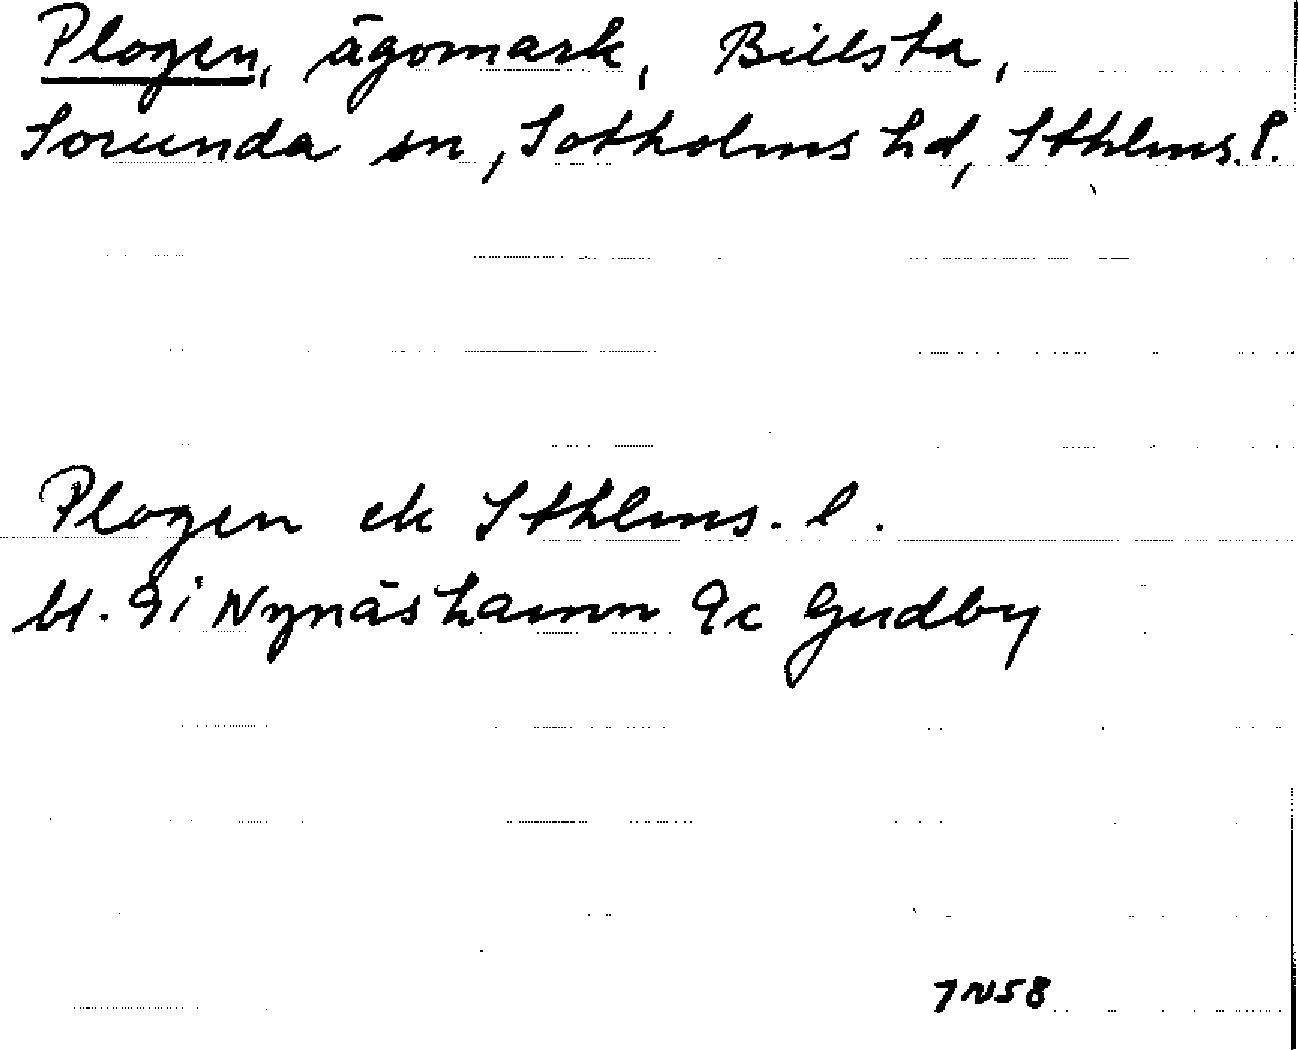 Plogen, ägomark, Billsta,
Sorunda sn, Sotholms hd, Sthlms. l.
Plogen ek Sthlms. l.
bl. 9i Nynäshamn 9c Gudby
7N58